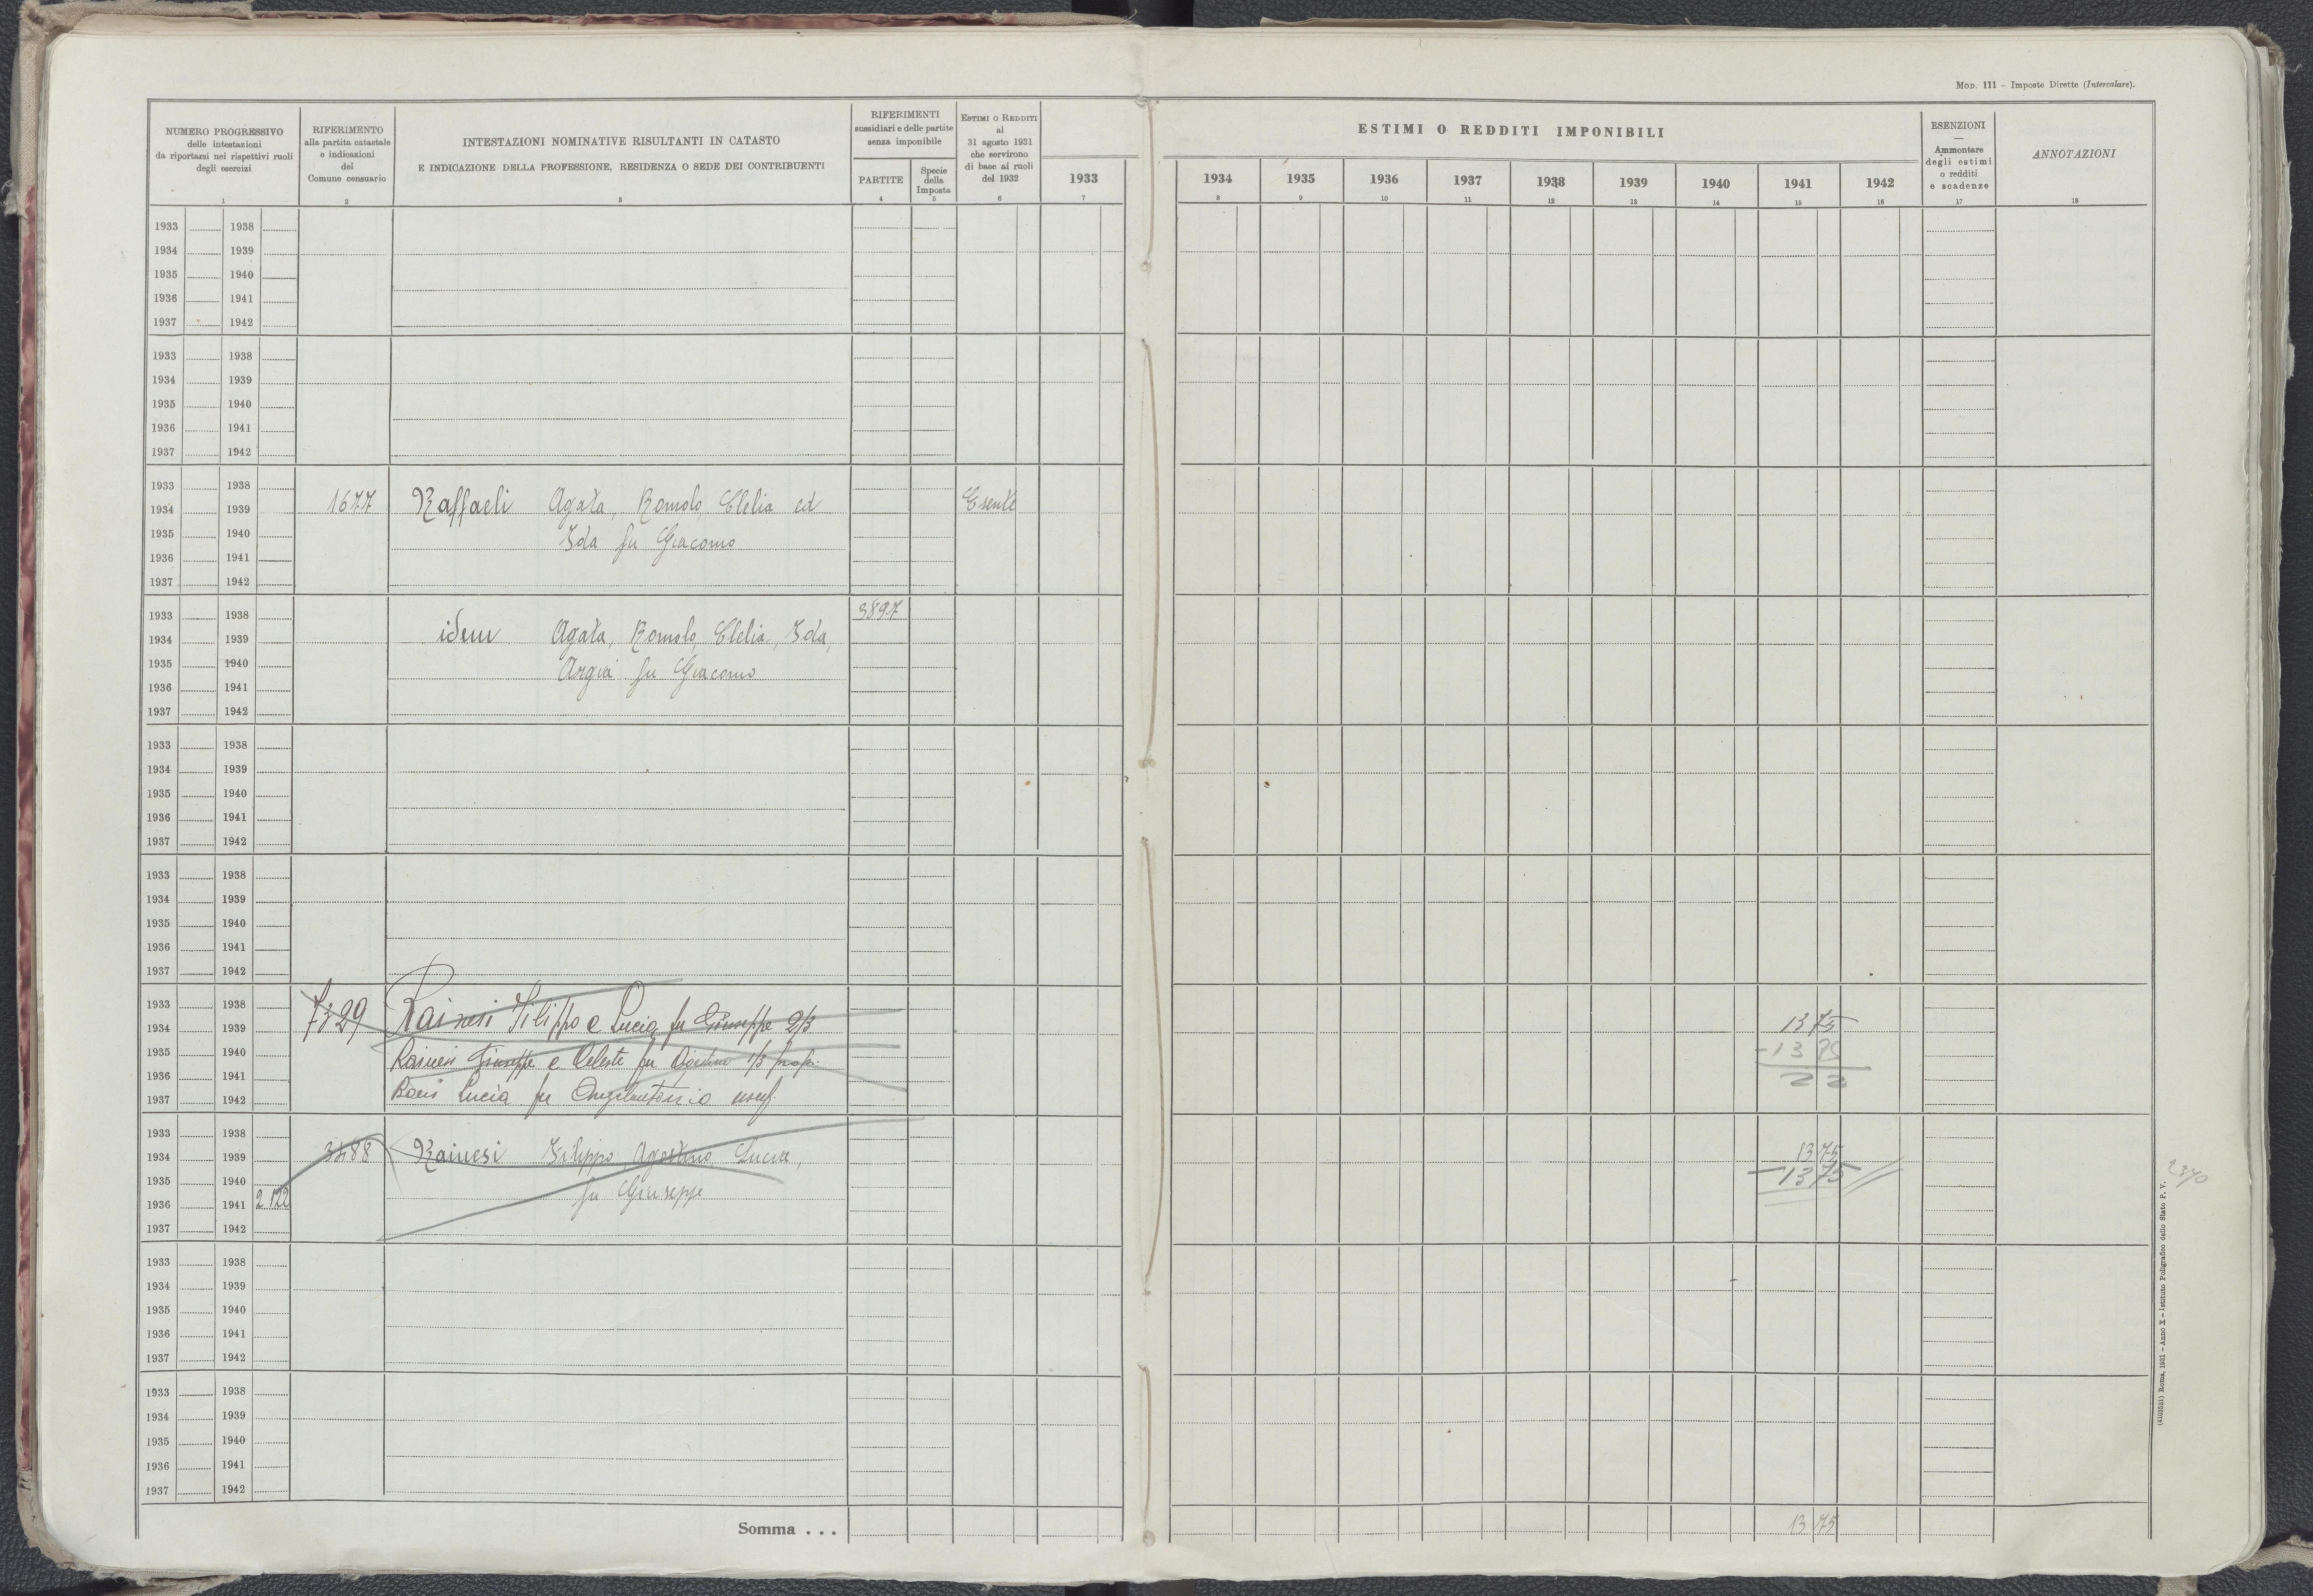 Mod. 111 - Imposte Dirette (Intercalare).
NUMERO PROGRESSIVO
delle intestazioni
da riportarsi nei rispettivi ruoli
degli esercizi
1
RIFERIMENTO
alla partita catastale
e indicazioni
del
Comune censuario
2
INTESTAZIONI NOMINATIVE RISULTANTI IN CATASTO
E INDICAZIONE DELLA PROFESSIONE, RESIDENZA O SEDE DEI CONTRIBUENTI
3
RIFERIMENTI
sussidiari e delle partite
senza imponibile
PARTITE
4
Specie
della
Imposta
5
ESTIMI O REDDITI
al
31 agosto 1931
che servirono
di base ai ruoli
del 1932
6
1933
7
ESTIMI O REDDITI IMPONIBILI
1934 1935 1936 1937 1938 1939 1940 1941 1942
8 9 10 11 12 13 14 15 16
ESENZIONI
—
Ammontare
degli estimi
o redditi
e scadenze
17
ANNOTAZIONI
18
1933 1938
1934 1939
1935 1940
1936 1941
1937 1942
1933 1938
1934 1939
1935 1940
1936 1941
1937 1942
1933 1938
1934 1939 1677 Raffaeli Agata, Romolo, Clelia ed Esente
1935 1940 Ida fu Giacomo
1936 1941
1937 1942
1933 1938 3897
1934 1939 idem Agata, Romolo, Clelia, Ida,
1935 1940 Argia fu Giacomo
1936 1941
1937 1942
1933 1938
1934 1939
1935 1940
1936 1941
1937 1942
1933 1938
1934 1939
1935 1940
1936 1941
1937 1942
1933 1938
1934 1939 7329 Rainesi Filippo e Lucia fu Giuseppe 2/3 1375
1935 1940 Raineri Giuseppe e Celeste fu 1/3
1936 1941
1937 1942 Lucia fu Angelantonio usuf. 22
1933 1938
1934 1939 3488 Rainesi Filippo Agostino, Lucia, 1375
1935 1940 fu Giuseppe -1375
1936 1941 2122
1937 1942
1933 1938
1934 1939
1935 1940
1936 1941
1937 1942
1933 1938
1934 1939
1935 1940
1936 1941
1937 1942
Somma . . . 1375
Roma, 1931 - Anno X - Istituto Poligrafico dello Stato P. V.